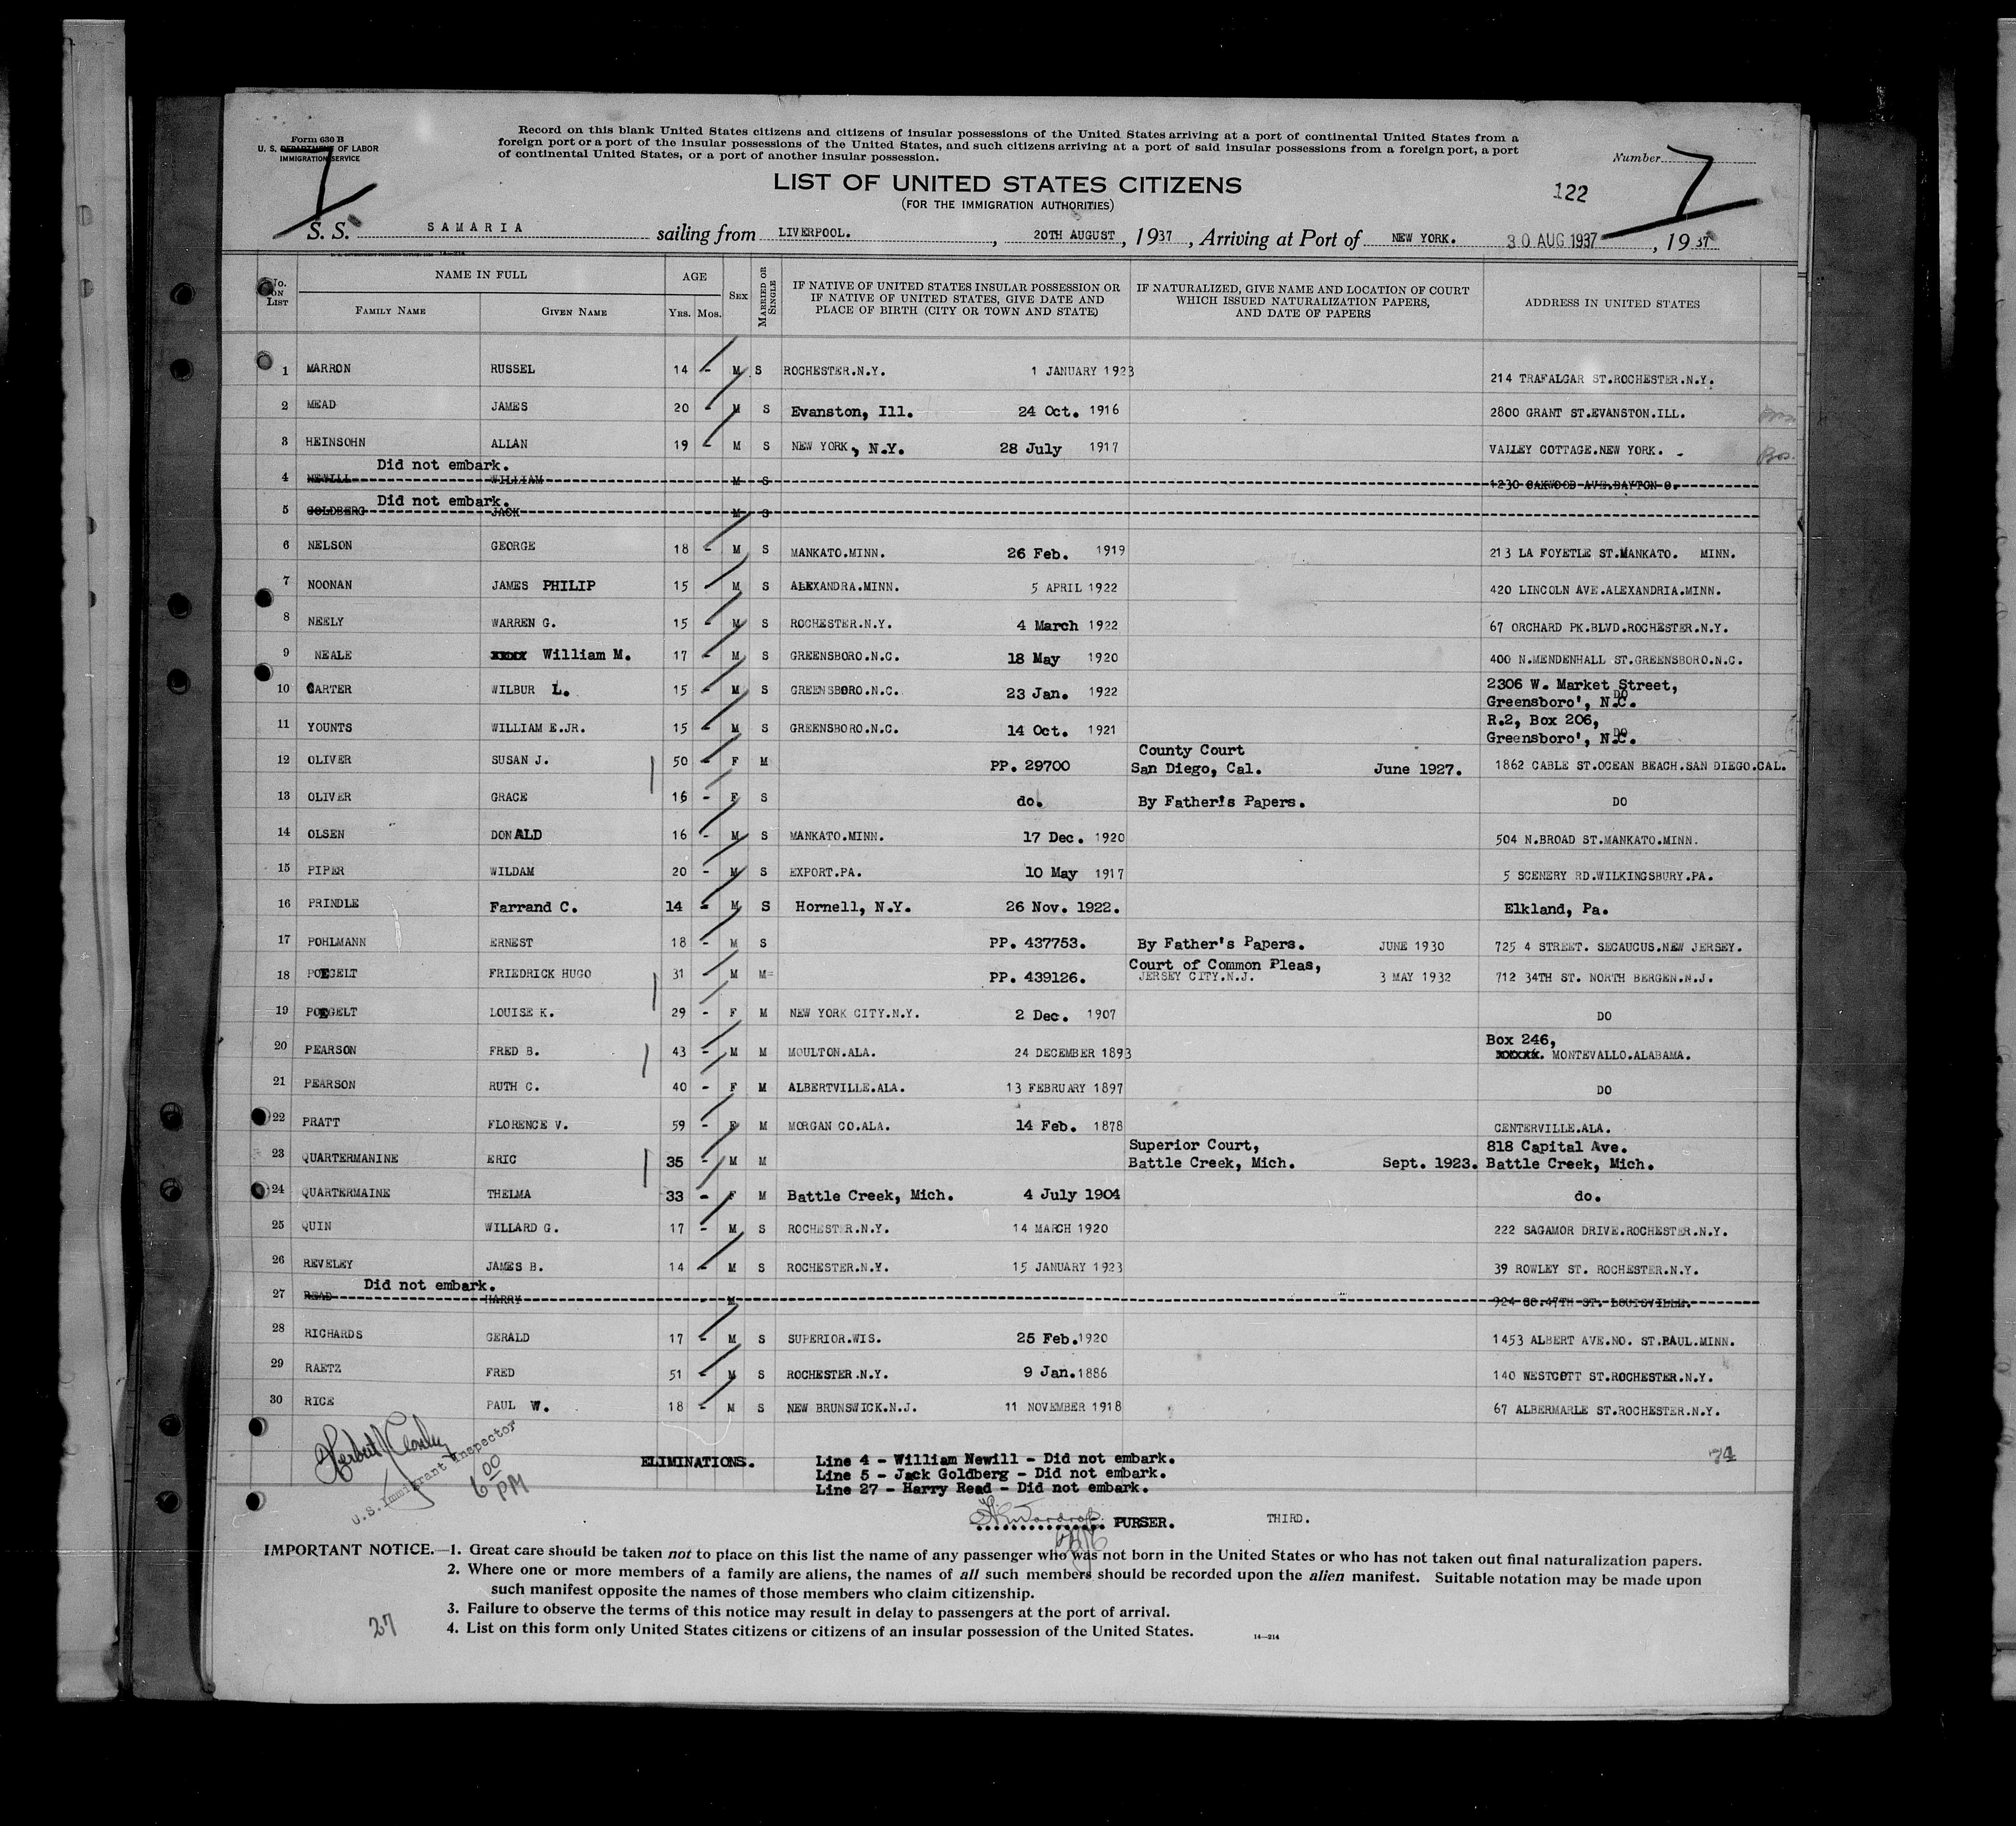 Form 630 B
U. S. DEPARTMENT OF LABOR
IMMIGRATION SERVICE
Record on this blank United States citizens and citizens of insular possessions of the United States arriving at a port of continental United States from a
foreign port or a port of the insular possessions of the United States, and such citizens arriving at a port of said insular possessions from a foreign port, a port
of continental United States, or a port of another insular possession.
Number
7 7
LIST OF UNITED STATES CITIZENS
(FOR THE IMMIGRATION AUTHORITIES)
122
S. S. SAMARIA sailing from LIVERPOOL. , 20TH AUGUST , 1937 , Arriving at Port of NEW YORK. 30 AUG 1937 , 19 37
No. ON LIST NAME IN FULL FAMILY NAME GIVEN NAME AGE YRS. MOS. SEX MARRIED OR SINGLE IF NATIVE OF UNITED STATES INSULAR POSSESSION OR IF NATIVE OF UNITED STATES, GIVE DATE AND PLACE OF BIRTH (CITY OR TOWN AND STATE) IF NATURALIZED, GIVE NAME AND LOCATION OF COURT WHICH ISSUED NATURALIZATION PAPERS, AND DATE OF PAPERS ADDRESS IN UNITED STATES
1 MARRON RUSSEL 14 - M S ROCHESTER.N.Y. 1 JANUARY 1923 214 TRAFALGAR ST.ROCHESTER.N.Y.
2 MEAD JAMES 20 - M S Evanston, Ill. 24 Oct. 1916 2800 GRANT ST.EVANSTON.ILL.
3 HEINSOHN ALLAN 19 - M S NEW YORK, N.Y. 28 July 1917 VALLEY COTTAGE.NEW YORK. -
Did not embark.
4 NEWILL WILLIAM M S 1230 OAKWOOD AVE.DAYTON O.
Did not embark.
5 GOLDBERG JACK M S
6 NELSON GEORGE 18 - M S MANKATO.MINN. 26 Feb. 1919 213 LA FOYETLE ST.MANKATO. MINN.
7 NOONAN JAMES PHILIP 15 M S ALEXANDRA.MINN. 5 APRIL 1922 420 LINCOLN AVE.ALEXANDRIA.MINN.
8 NEELY WARREN G. 15 - M S ROCHESTER.N.Y. 4 March 1922 67 ORCHARD PK.BLVD.ROCHESTER.N.Y.
9 NEALE xxxx William M. 17 - M S GREENSBORO.N.C. 18 May 1920 400 N.MENDENHALL ST.GREENSBORO.N.C.
10 CARTER WILBUR L. 15 - M S GREENSBORO.N.C. 23 Jan. 1922 2306 W. Market Street,
Greensboro', N.C. DO
11 YOUNTS WILLIAM E.JR. 15 - M S GREENSBORO.N.C. 14 Oct. 1921 R.2, Box 206,
Greensboro', N.C. DO
12 OLIVER SUSAN J. 50 - F M PP. 29700 County Court
San Diego, Cal. June 1927. 1862 CABLE ST.OCEAN BEACH.SAN DIEGO.CAL.
13 OLIVER GRACE 16 - F S do. By Father's Papers. DO
14 OLSEN DONALD 16 - M S MANKATO.MINN. 17 Dec. 1920 504 N.BROAD ST.MANKATO.MINN.
15 PIPER WILDAM 20 - M S EXPORT.PA. 10 May 1917 5 SCENERY RD.WILKINGSBURY.PA.
16 PRINDLE Farrand C. 14 - M S Hornell, N.Y. 26 Nov. 1922. Elkland, Pa.
17 POHLMANN ERNEST 18 - M S PP. 437753. By Father's Papers. JUNE 1930 725 4 STREET. SECAUCUS.NEW JERSEY.
18 POEGELT FRIEDRICK HUGO 31 M M= PP. 439126. Court of Common Pleas,
JERSEY CITY.N.J. 3 MAY 1932 712 34TH ST. NORTH BERGEN.N.J.
19 POEGELT LOUISE K. 29 - F M NEW YORK CITY.N.Y. 2 Dec. 1907 DO
20 PEARSON FRED B. 43 - M M MOULTON.ALA. 24 DECEMBER 1893 Box 246,
xxxxx. MONTEVALLO.ALABAMA.
21 PEARSON RUTH C. 40 - F M ALBERTVILLE.ALA. 13 FEBRUARY 1897 DO
22 PRATT FLORENCE V. 59 - F M MORGAN CO.ALA. 14 Feb. 1878 CENTERVILLE.ALA.
23 QUARTERMANINE ERIC 35 - M M Superior Court,
Battle Creek, Mich. Sept. 1923. 818 Capital Ave.
Battle Creek, Mich.
24 QUARTERMAINE THELMA 33 - F M Battle Creek, Mich. 4 July 1904 do.
25 QUIN WILLARD G. 17 - M S ROCHESTER.N.Y. 14 MARCH 1920 222 SAGAMOR DRIVE.ROCHESTER.N.Y.
26 REVELEY JAMES B. 14 - M S ROCHESTER.N.Y. 15 JANUARY 1923 39 ROWLEY ST. ROCHESTER.N.Y.
Did not embark.
27 READ HARRY M 924 SO.47TH ST. LOUISVILLE.
28 RICHARDS GERALD 17 - M S SUPERIOR.WIS. 25 Feb.1920 1453 ALBERT AVE.NO. ST.PAUL.MINN.
29 RAETZ FRED 51 - M S ROCHESTER.N.Y. 9 Jan.1886 140 WESTCOTT ST.ROCHESTER.N.Y.
30 RICE PAUL W. 18 - M S NEW BRUNSWICK.N.J. 11 NOVEMBER 1918 67 ALBERMARLE ST.ROCHESTER.N.Y.
U.S. Immigrant Inspector
6 00 PM
ELIMINATIONS. Line 4 - William Newill - Did not embark.
Line 5 - Jack Goldberg - Did not embark.
Line 27 - Harry Read - Did not embark.
PURSER. THIRD.
IMPORTANT NOTICE.—1. Great care should be taken not to place on this list the name of any passenger who was not born in the United States or who has not taken out final naturalization papers.
2. Where one or more members of a family are aliens, the names of all such members should be recorded upon the alien manifest. Suitable notation may be made upon
such manifest opposite the names of those members who claim citizenship.
3. Failure to observe the terms of this notice may result in delay to passengers at the port of arrival.
4. List on this form only United States citizens or citizens of an insular possession of the United States.
14—214
27